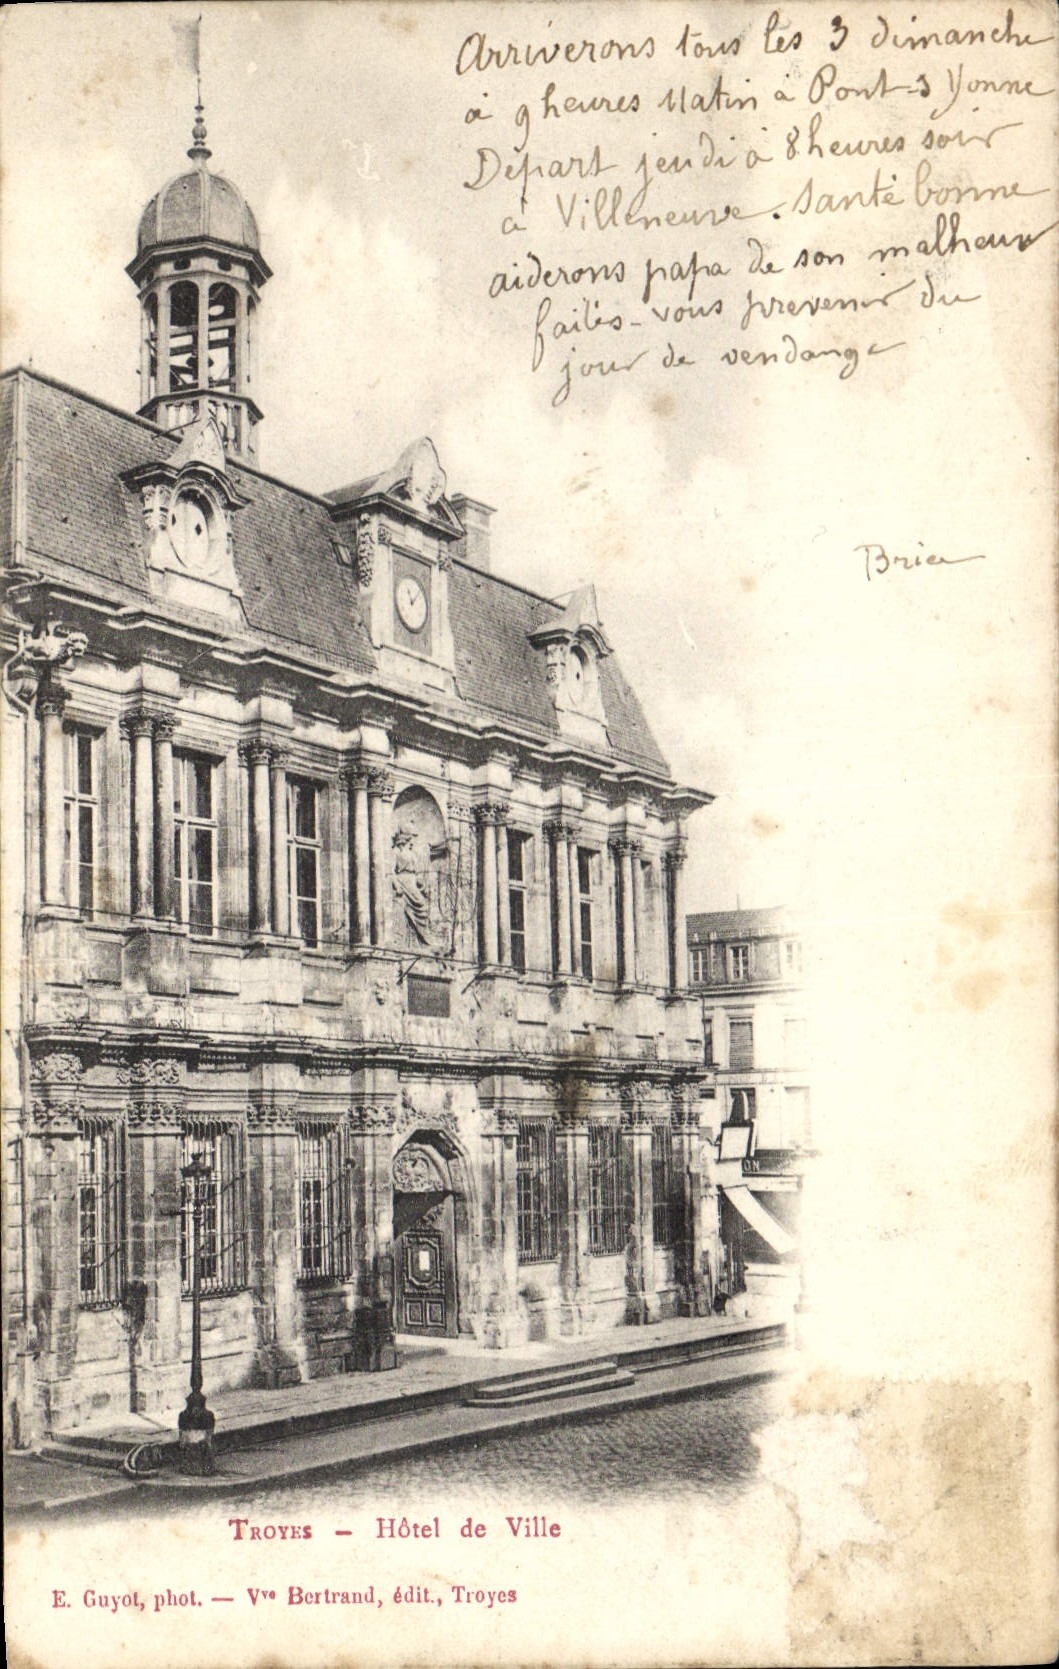 Arriverons tous les 3 dimanche
à 9 heures Matin à Pont-s Yonne
Départ jeudi à 8 heures soir
à Villeneuve. Santé bonne
aiderons papa de son malheur
faites-vous prevenir du
jour de vendange
ON
TROYES — Hôtel de Ville
E. Guyot, phot. — Vve Bertrand, édit., Troyes